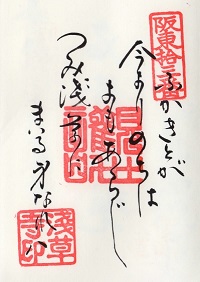 阪東拾三番
ふかきとが
今よりのちは
よもあらじ
つみ浅草に
まいる身なれハ
淺草寺印